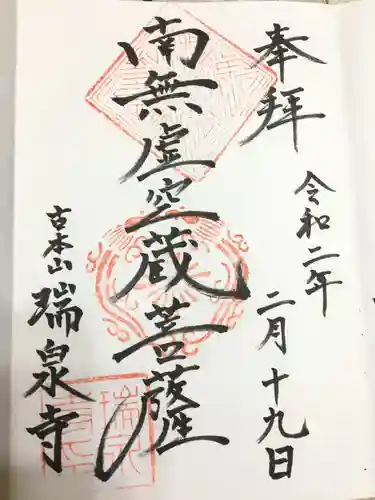 奉拝
令和二年
二月十九日
南無虚空蔵菩薩
吉本山
瑞泉寺